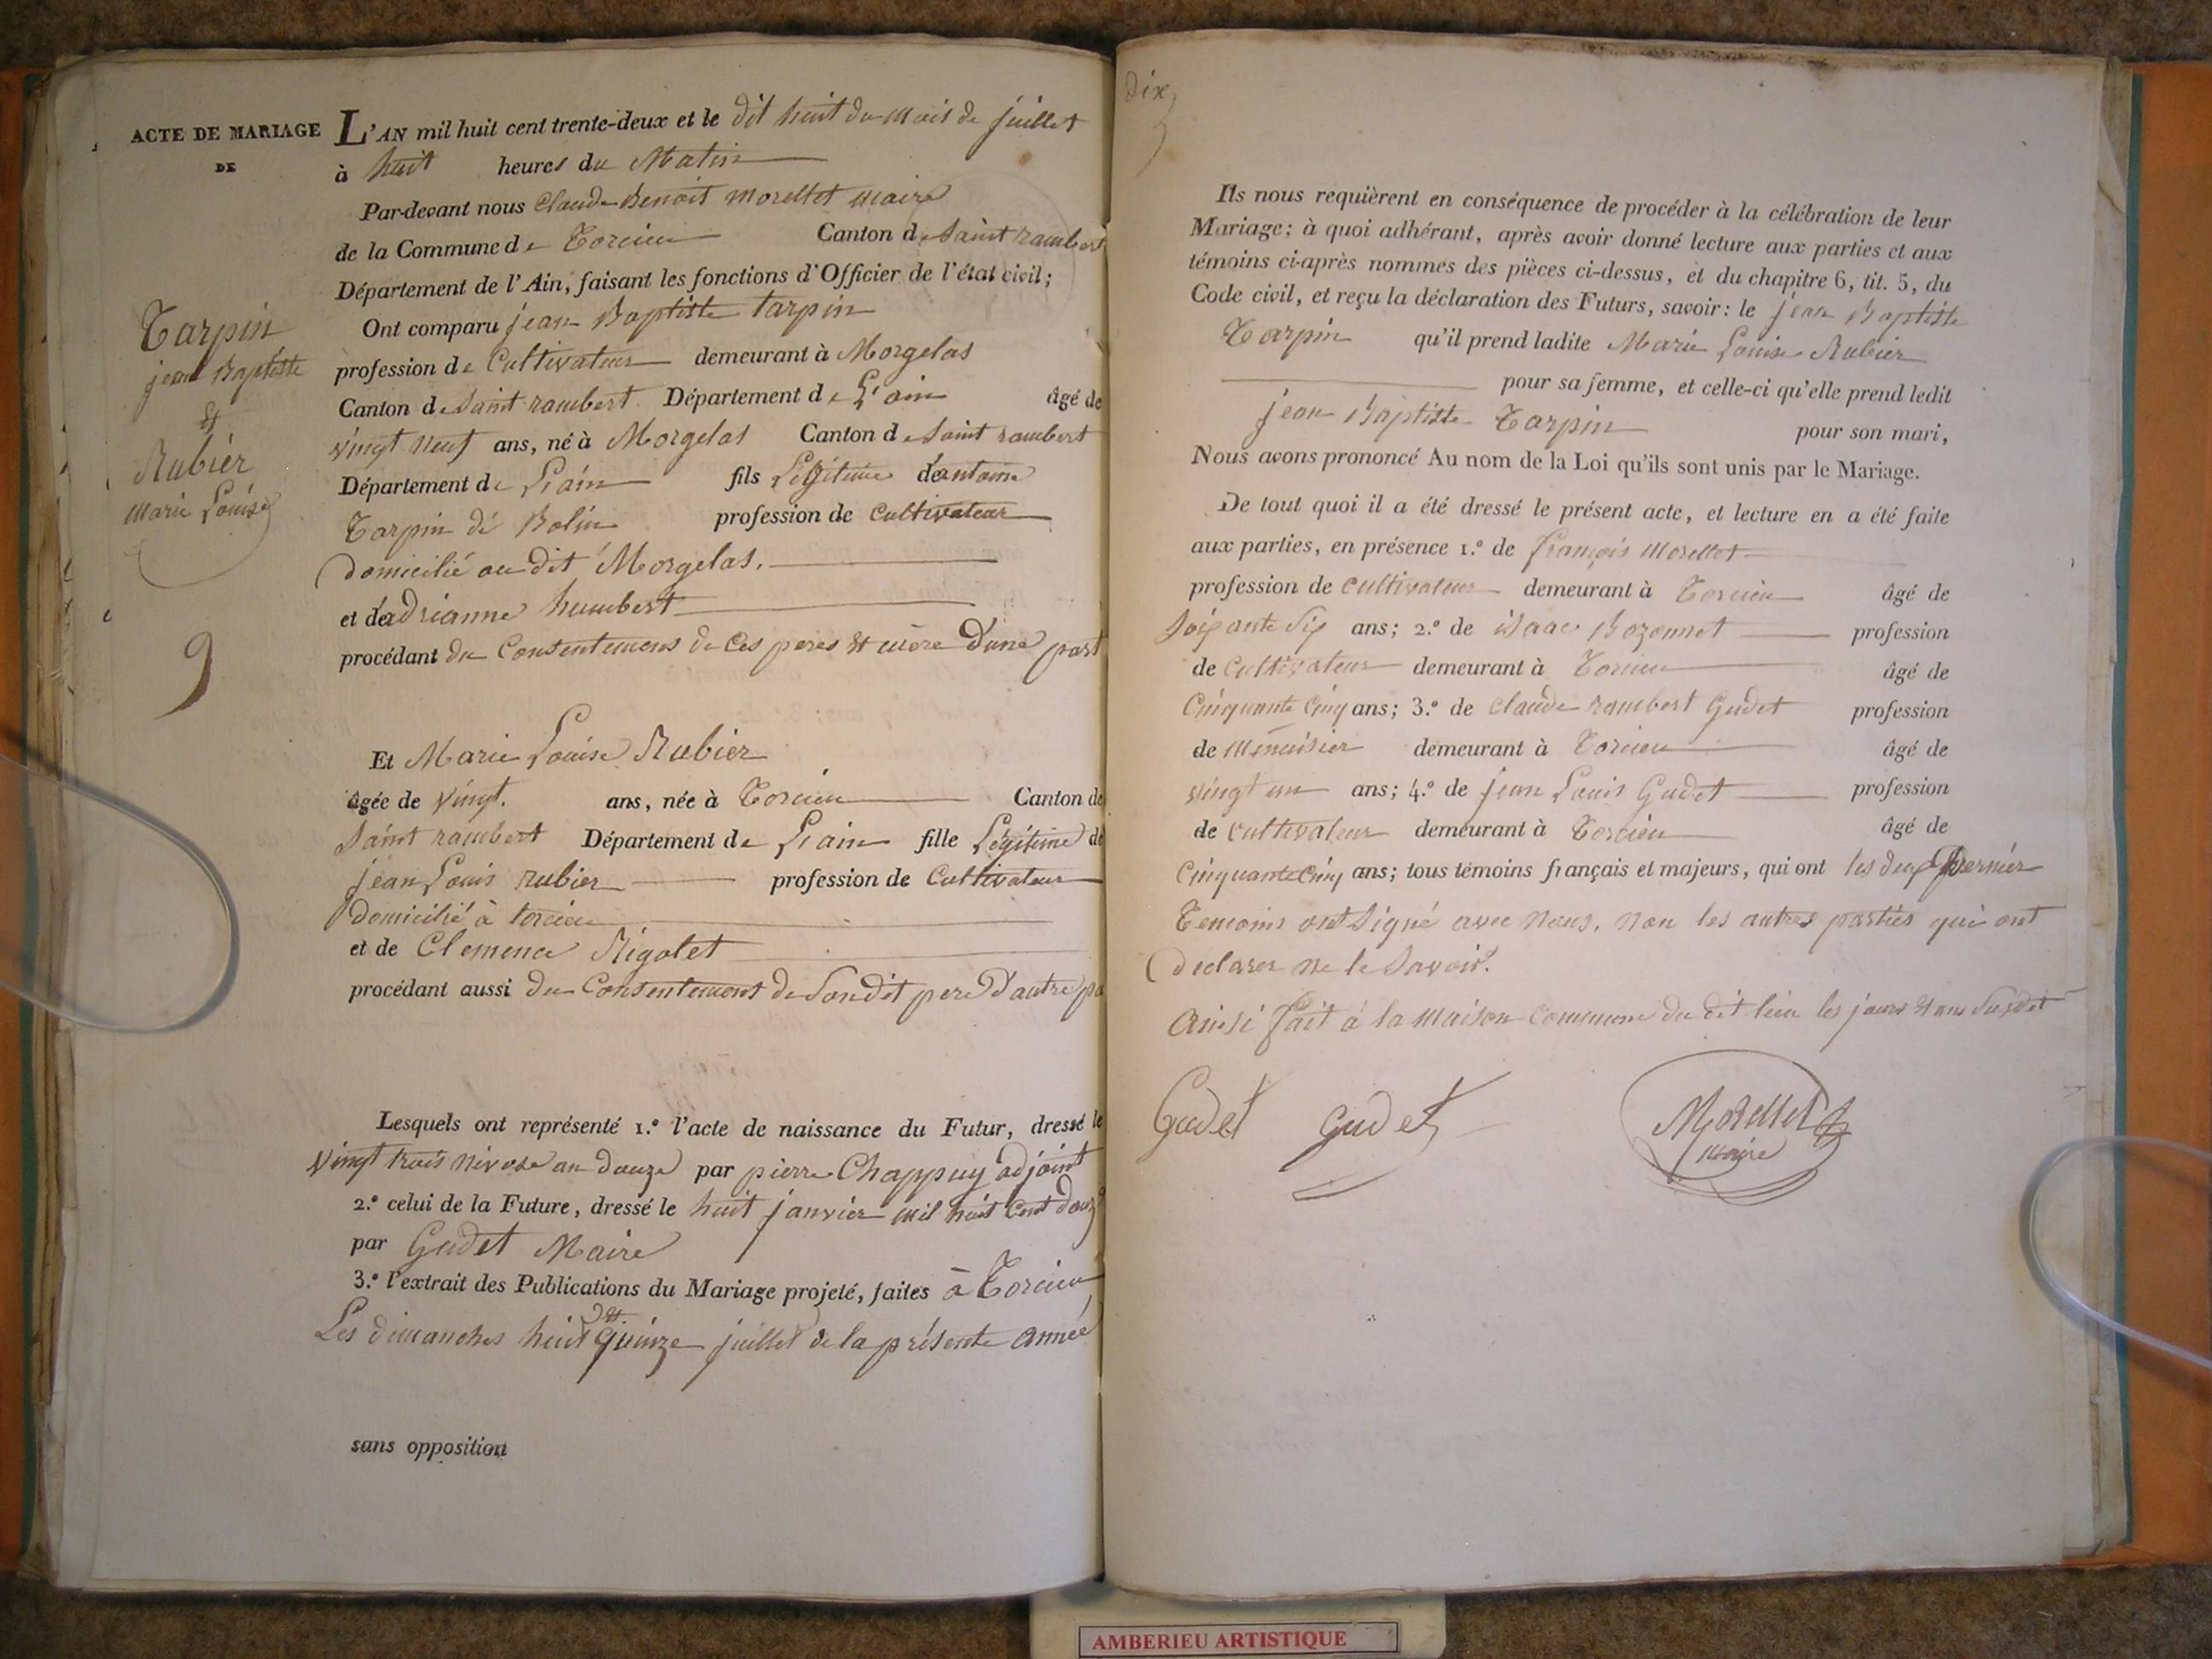 ACTE DE MARIAGE
DE
Tarpin
jean Baptiste
et
Rubier
marie Louise
9
L'AN mil huit cent trente-deux et le dit huit du mois de juillet
à huit heures du Matin
Par-devant nous Claude Benoit morellet maire
de la Commune de Torcieu Canton de Saint rambert
Département de l'Ain, faisant les fonctions d'Officier de l'état civil;
Ont comparu jean Baptiste tarpin
profession de Cultivateur demeurant à Morgelas
Canton de Saint rambert Département de L'ain âgé de
vingt neuf ans, né à Morgelas Canton de Saint rambert
Département de L'ain fils Légitime d'antoine
Tarpin di Bolin profession de Cultivateur
domicilié au dit Morgelas.
et de adrianne humbert
procédant du Consentement de Ces peres et mère D'une part
Et Marie Louise Rubier
âgée de vingt. ans, née à Torcieu Canton de
Saint rambert Département de L'ain fille Légitime de
jean Louis rubier profession de Cultivateur
domicilié à torcieu
et de Clemence Rigolet
procédant aussi du Consentement de Sondit pere D'autre pa
Lesquels ont représenté 1.º l'acte de naissance du Futur, dressé le
vingt trois nivose an douze par pierre Chappuy adjoint
2.º celui de la Future, dressé le huit janvier mil huit Cent douze
par Gudet Maire
3.º l'extrait des Publications du Mariage projeté, faites à Torcieu
Les dimanches huit et quinze juillet de la présente année
sans opposition
dix
Ils nous requièrent en conséquence de procéder à la célébration de leur
Mariage; à quoi adhérant, après avoir donné lecture aux parties et aux
témoins ci-après nommés des pièces ci-dessus, et du chapitre 6, tit. 5, du
Code civil, et reçu la déclaration des Futurs, savoir: le jean Baptiste
Tarpin qu'il prend ladite Marie Louise Rubier
pour sa femme, et celle-ci qu'elle prend ledit
jean Baptiste Tarpin pour son mari,
Nous avons prononcé Au nom de la Loi qu'ils sont unis par le Mariage.
De tout quoi il a été dressé le présent acte, et lecture en a été faite
aux parties, en présence 1.º de françois Morellet
profession de Cultivateur demeurant à Torcieu âgé de
Soixante Six ans; 2.º de isaac Bozonnet profession
de Cultivateur demeurant à Torcieu âgé de
Cinquante Cinq ans; 3.º de Claude rambert Gudet profession
de Menuisier demeurant à Torcieu âgé de
vingt un ans; 4.º de jean Louis Gudet profession
de Cultivateur demeurant à Torcieu âgé de
Cinquante Cinq ans; tous témoins français et majeurs, qui ont les deux dernier
Temoins ont Signé avec Nous, Non les autres parties qui ont
declarer ne le Savoir.
Ainsi fait à la Maison Commune du dit lieu les jours et an Susdit
Gudet Gudet Morellet
maire
AMBERIEU ARTISTIQUE